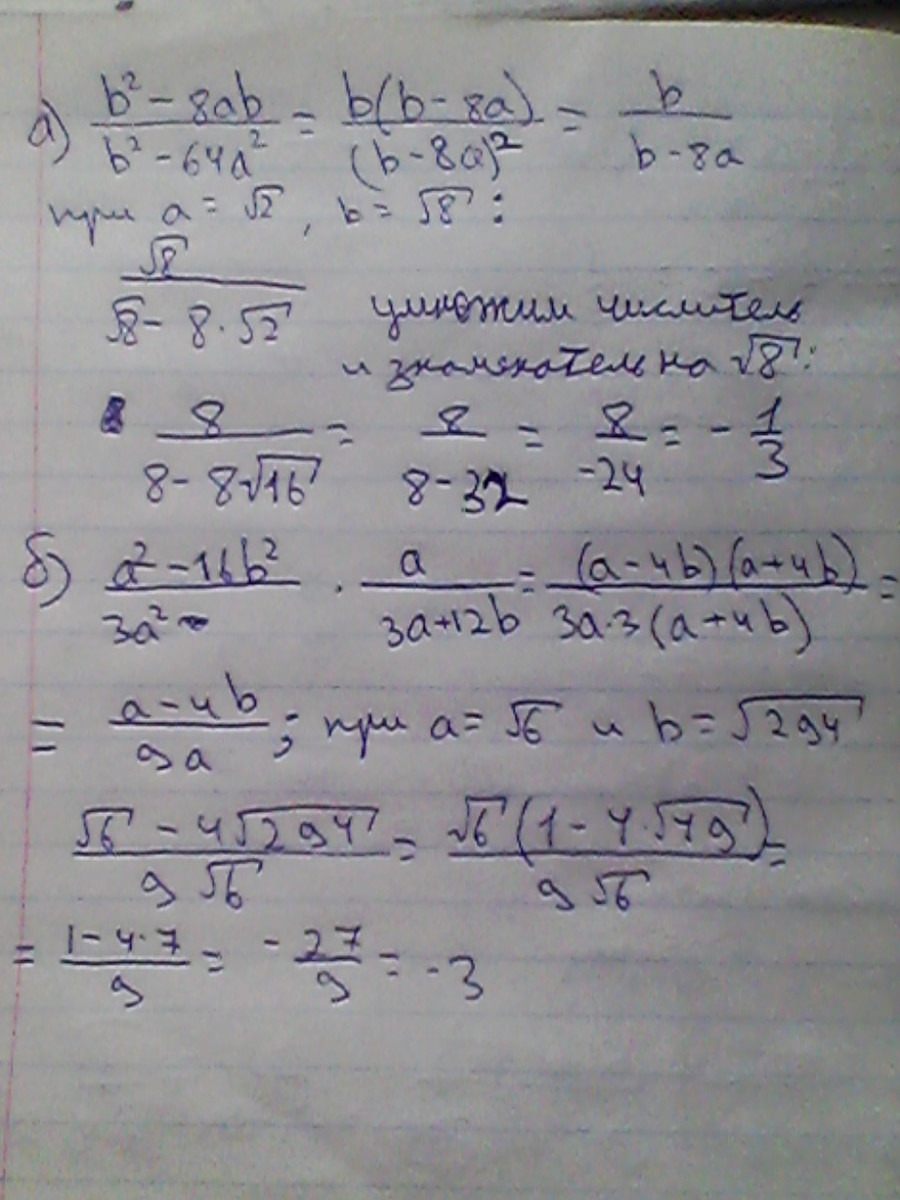 а) (b² - 8ab)/(b² - 64a²) = b(b - 8a)/(b - 8a)² = b/(b - 8a)
при a = √2, b = √8:
√8/(√8 - 8·√2) умножим числитель
и знаменатель на √8:
8/(8 - 8√16) = 8/(8 - 32) = 8/(-24) = - 1/3
б) (a² - 16b²)/(3a²) · a/(3a + 12b) = (a - 4b)(a + 4b)/(3a·3(a + 4b)) =
= (a - 4b)/(9a); при a = √6 и b = √294
(√6 - 4√294)/(9√6) = √6(1 - 4·√49)/(9√6) =
= (1 - 4·7)/9 = - 27/9 = -3